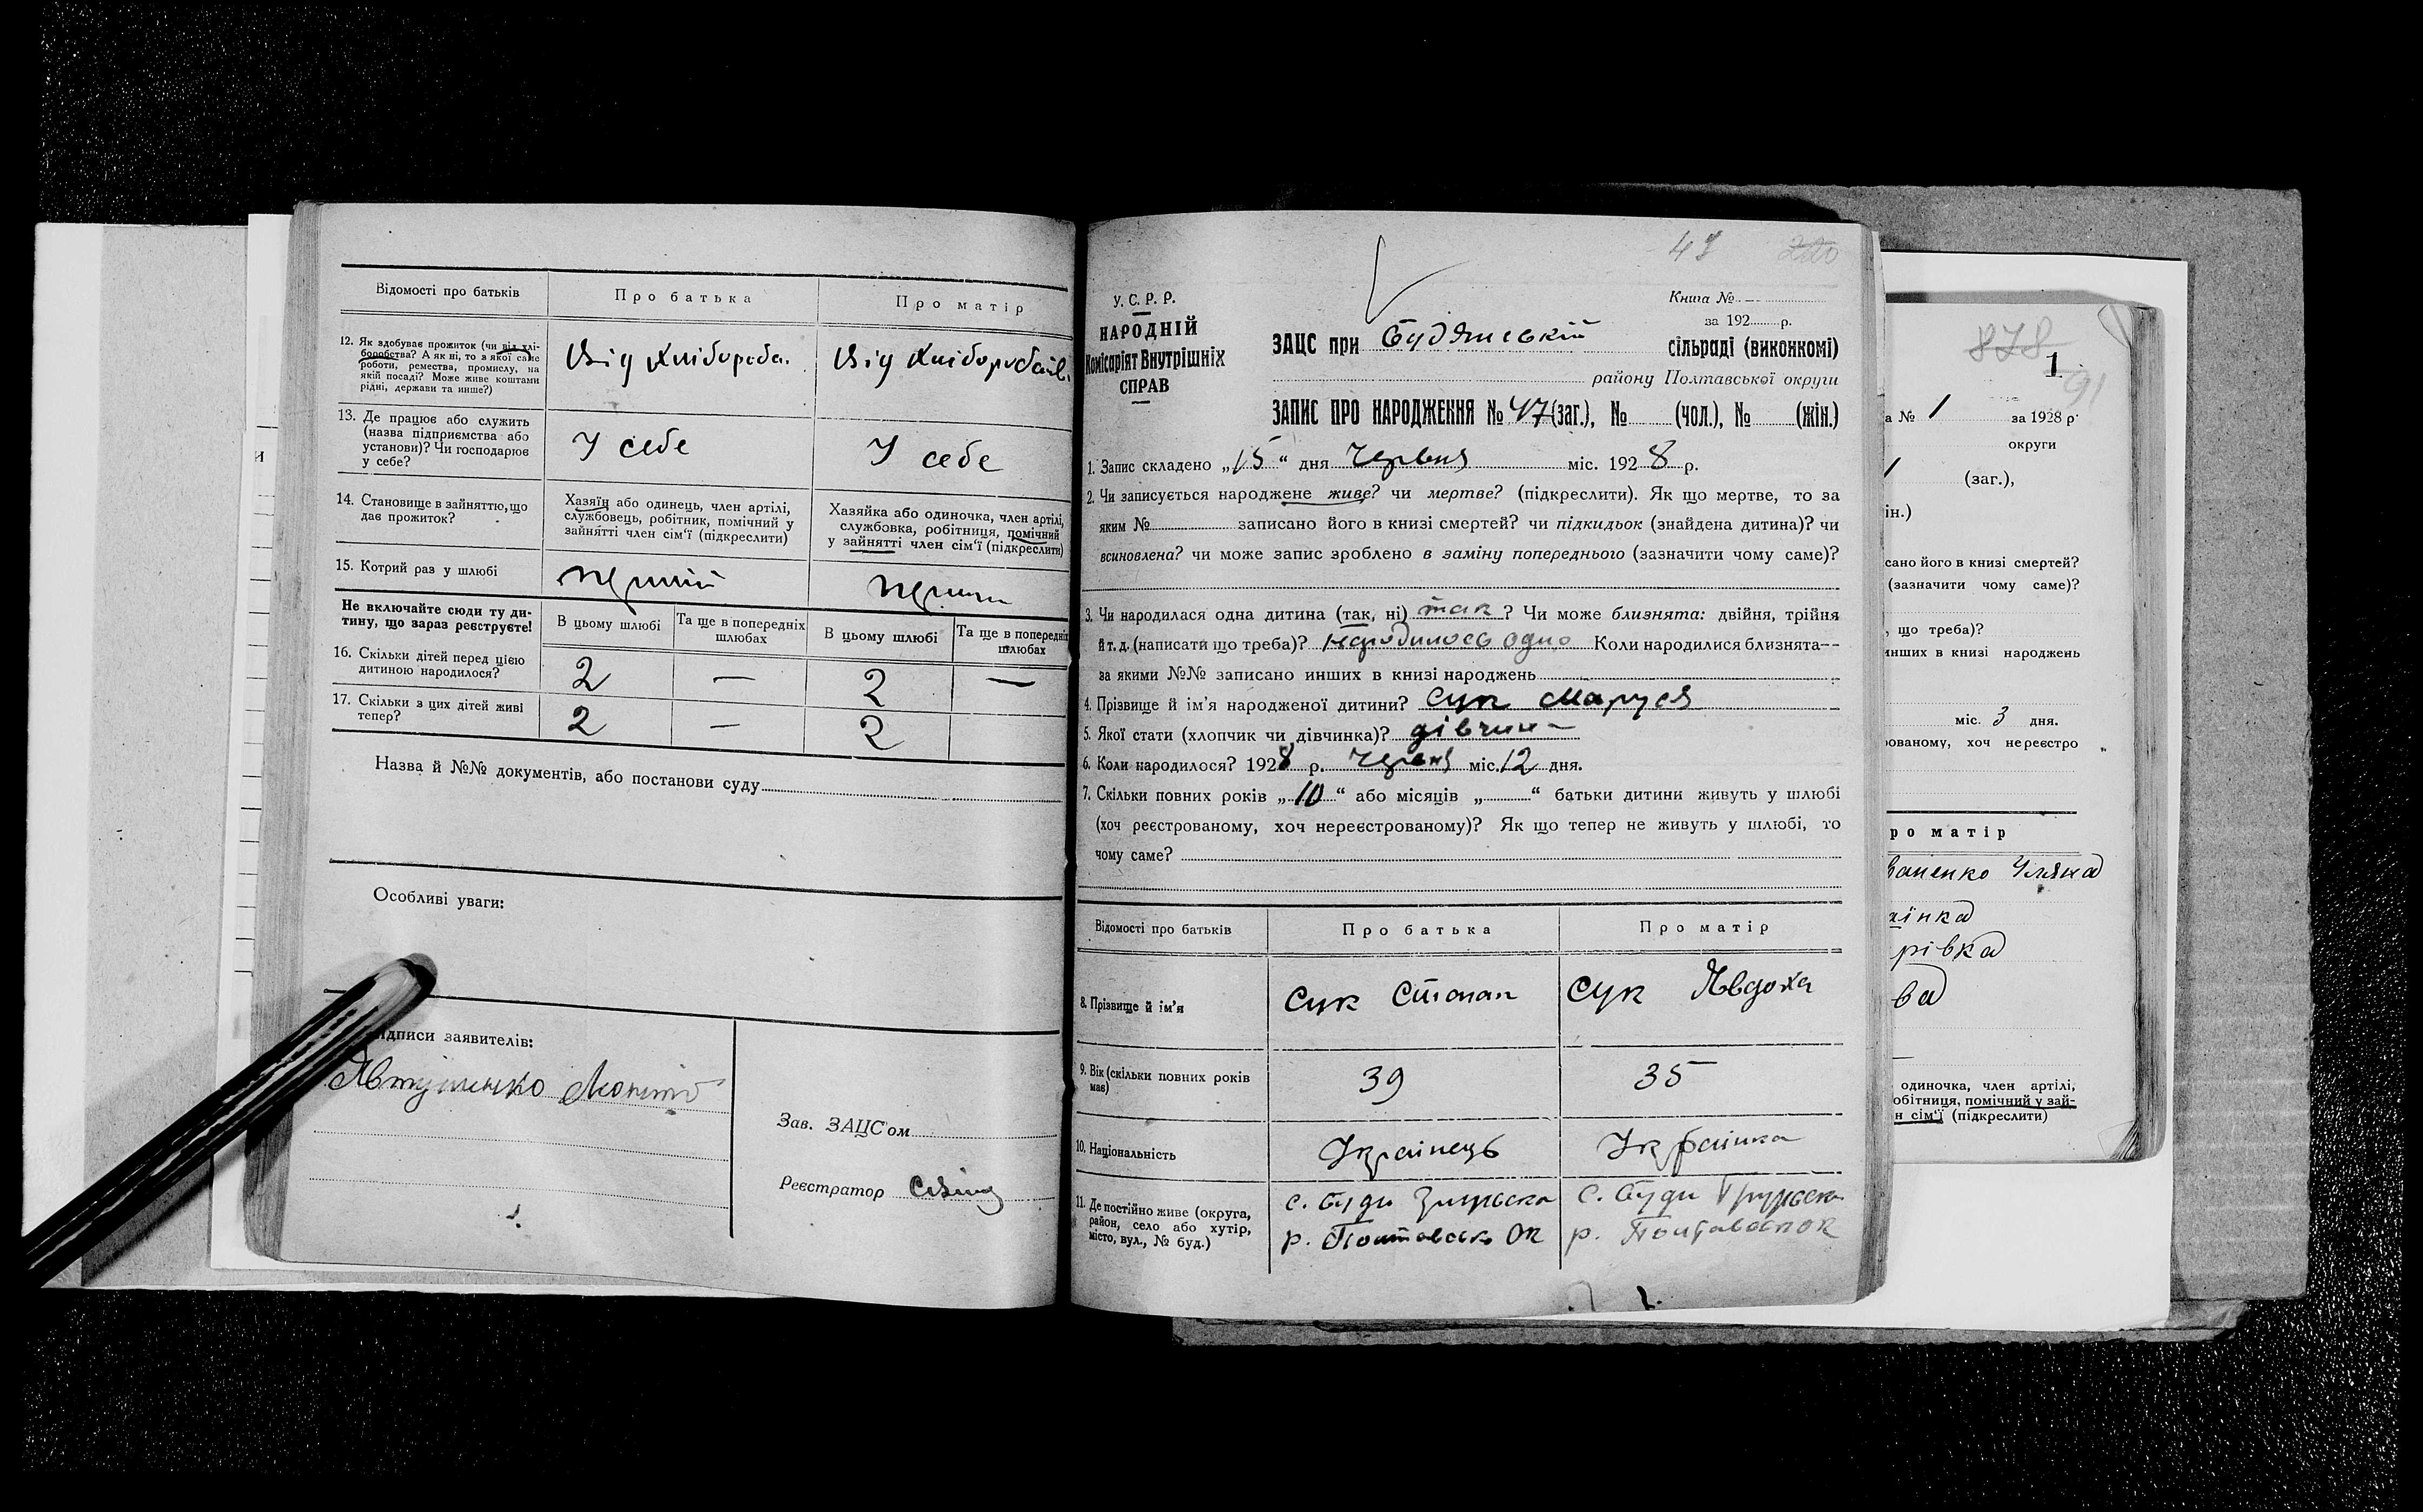 Відомості про батьків
Про батька
Про матір
12. Як здобуває прожиток (чи від хлі-
боробства? А як ні, то з якої саме
роботи, ремества, промислу, на
якій посаді? Може живе коштами
рідні, держави та инше?)
Від хлібороба.
Від
13. Де працює або служить
(назва підприємства або
установи)? Чи господарює
у себе?
У себе
У себе
14. Становище в зайняттю, що
дає прожиток?
Хазяїн або одинець, член артілі,
службовець, робітник, помічний у
зайнятті член сім'ї (підкреслити)
Хазяйка або одиночка, член артілі,
службовка, робітниця, помічний
у зайнятті член сім'ї (підкреслити)
15. Котрий раз у шлюбі
перший
Не включайте сюди ту ди-
тину, що зараз реєструєте!
В цьому шлюбі
Та ще в попередніх
шлюбах
В цьому шлюбі
Та ще в попередніх
шлюбах
16. Скільки дітей перед цією
дитиною народилося?
2 — 2 —
17. Скільки з цих дітей живі
тепер?
2 — 2
Назва й №№ документів, або постанови суду
Особливі уваги:
підписи заявителів:
Зав. ЗАЦС'ом
Реєстратор
47 220
У. С. Р. Р.
НАРОДНІЙ
Комісаріят Внутрішніх
СПРАВ
Книга № —
за 192 р.
ЗАЦС при Будянській сільраді (виконкомі)
району Полтавської округи
ЗАПИС ПРО НАРОДЖЕННЯ № 47 (заг.), № (чол.), № (жін.)
1. Запис складено „15“ дня Червня міс. 1928 р.
2. Чи записується народжене живе? чи мертве? (підкреслити). Як що мертве, то за
яким № записано його в книзі смертей? чи підкидьок (знайдена дитина)? чи
всиновлена? чи може запис зроблено в заміну попереднього (зазначити чому саме)?
3. Чи народилася одна дитина (так, ні) так ? Чи може близнята: двійня, трійня
й т. д. (написати що треба)? народилось одно Коли народилися близнята—
за якими №№ записано инших в книзі народжень
4. Прізвище й ім'я народженої дитини? Сук Маруся
5. Якої стати (хлопчик чи дівчинка)?
6. Коли народилось? 1928 р. Червня міс. 12 дня.
7. Скільки повних років „10“ або місяців „ “ батьки дитини живуть у шлюбі
(хоч реєстрованому, хоч нереєстрованому)? Як що тепер не живуть у шлюбі, то
чому саме?
Відомості про батьків
Про батька
Про матір
8. Прізвище й ім'я
Сук Степан
Сук Явдоха
9. Вік (скільки повних років
має)
39
35
10. Національність
Українець
Українка
11. Де постійно живе (округа,
район, село або хутір,
місто, вул., № буд.)
с. Буди
р. Полтавсько Ок
с. Буди
р. Полтавськ Ок
878
1
91
а № 1 за 1928 р.
округи
1 (заг.),
ін.)
сано його в книзі смертей?
(зазначити чому саме)?
, що треба)?
инших в книзі народжень
міс. 3 дня.
ованому, хоч нереєстро
ро матір
ваненко Уляна
аїнка
рівка
ва
—
одиночка, член артілі,
обітниця, помічний у зай-
н сім'ї (підкреслити)